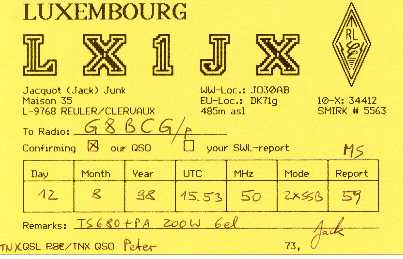 LUXEMBOURG
LX1JX
RL
Jacquot (Jack) Junk
Maison 35
L-9768 REULER/CLERVAUX
WW-Loc.: JO30AB
EU-Loc.: DK71g
485m asl
10-X: 34412
SMIRK # 5563
To Radio: G8BCG/P
Confirming ☒ our QSO ☐ your SWL-report MS
Day Month Year UTC MHz Mode Report
12 8 98 15.53 50 2XSSB 59
Remarks: TS680+PA 200W 6el
TNX QSL PSE/TNX QSO Peter 73, Jack